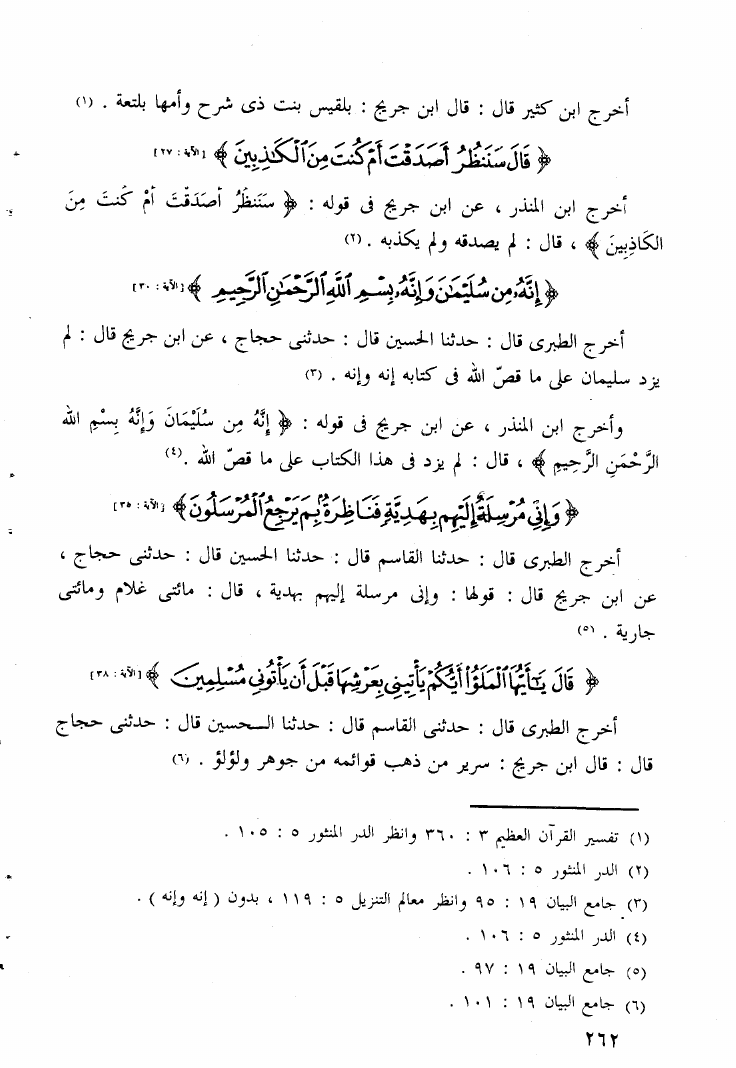 أخرج ابن كثير قال : قال ابن جريج : بلقيس بنت ذى شرح وأمها بلتعة . (١)
﴿ قَالَ سَنَنظُرُ أَصَدَقْتَ أَمْ كُنتَ مِنَ ٱلْكَٰذِبِينَ ﴾ [الآية : ٢٧]
أخرج ابن المنذر ، عن ابن جريج فى قوله : ﴿ سَنَنظُرُ أَصَدَقْتَ أَمْ كُنتَ مِنَ
الكَاذِبِينَ ﴾ ، قال : لم يصدقه ولم يكذبه . (٢)
﴿ إِنَّهُۥ مِن سُلَيْمَٰنَ وَإِنَّهُۥ بِسْمِ ٱللَّهِ ٱلرَّحْمَٰنِ ٱلرَّحِيمِ ﴾ [الآية : ٣٠]
أخرج الطبرى قال : حدثنا الحسين قال : حدثنى حجاج ، عن ابن جريج قال : لم
يزد سليمان على ما قصّ الله فى كتابه إنه وإنه . (٣)
وأخرج ابن المنذر ، عن ابن جريج فى قوله : ﴿ إِنَّهُ مِن سُلَيْمَانَ وَإِنَّهُ بِسْمِ الله
الرَّحْمَنِ الرَّحِيمِ ﴾ ، قال : لم يزد فى هذا الكتاب على ما قصّ الله .(٤)
﴿ وَإِنِّى مُرْسِلَةٌ إِلَيْهِم بِهَدِيَّةٍ فَنَاظِرَةٌۢ بِمَ يَرْجِعُ ٱلْمُرْسَلُونَ ﴾ [الآية : ٣٥]
أخرج الطبرى قال : حدثنا القاسم قال : حدثنا الحسين قال : حدثنى حجاج ،
عن ابن جريج قال : قولها : وإنى مرسلة إليهم بهدية ، قال : مائتى غلام ومائتى
جارية . (٥)
﴿ قَالَ يَٰٓأَيُّهَا ٱلْمَلَؤُا۟ أَيُّكُمْ يَأْتِينِى بِعَرْشِهَا قَبْلَ أَن يَأْتُونِى مُسْلِمِينَ ﴾ [الآية : ٣٨]
أخرج الطبرى قال : حدثنى القاسم قال : حدثنا الحسين قال : حدثنى حجاج
قال : قال ابن جريج : سرير من ذهب قوائمه من جوهر ولؤلؤ . (٦)
(١) تفسير القرآن العظيم ٣ : ٣٦٠ وانظر الدر المنثور ٥ : ١٠٥ .
(٢) الدر المنثور ٥ : ١٠٦ .
(٣) جامع البيان ١٩ : ٩٥ وانظر معالم التنزيل ٥ : ١١٩ ، بدون ( إنه وإنه ) .
(٤) الدر المنثور ٥ : ١٠٦ .
(٥) جامع البيان ١٩ : ٩٧ .
(٦) جامع البيان ١٩ : ١٠١ .
٢٦٢